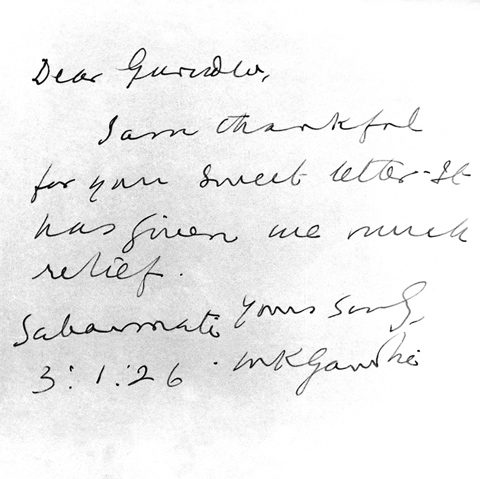 Dear Gurudev,
I am thankful
for your sweet letter. It
has given me much
relief.
Sabarmati Yours Sincly,
3:1:26 MKGandhi